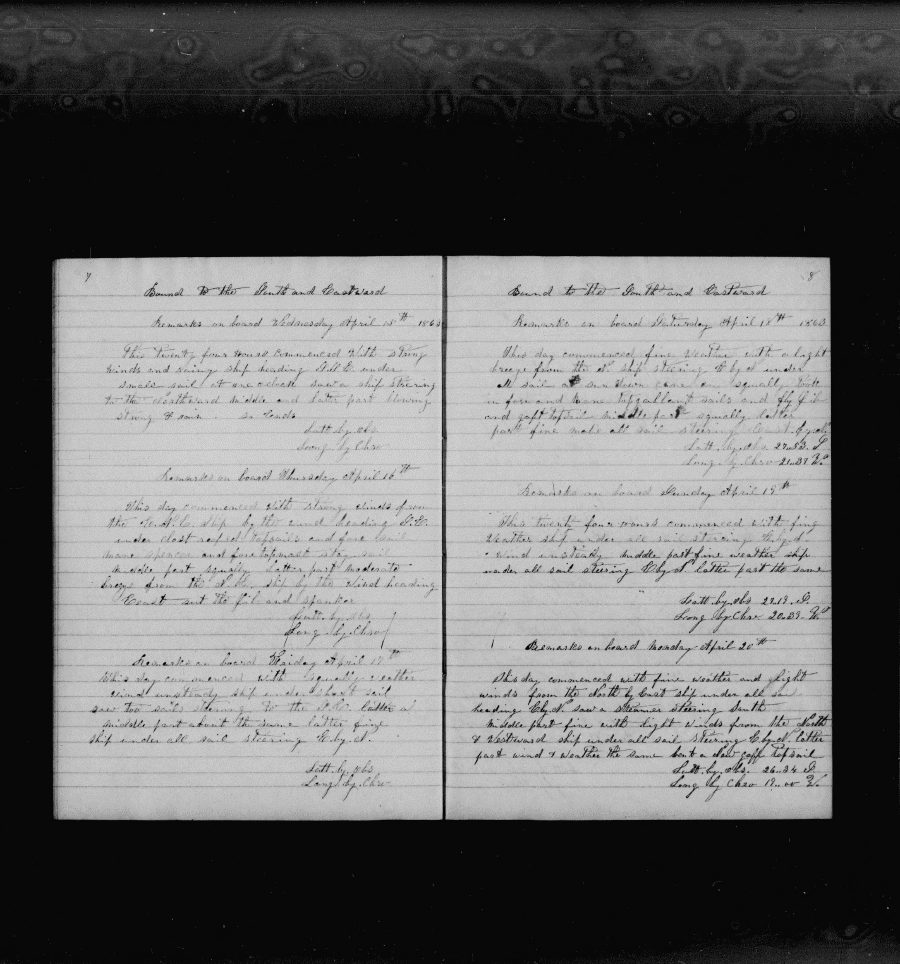 7
Bound to the South and Eastward
Remarks on board Wednesday April 15th 1863
This twenty four hours commenced with strong
winds and rainy ship heading S.S.E. under
small sail at one oclock saw a ship steering
to the Northward middle and latter part blowing
strong & rain. so Ends
Latt by obs
Long by Chro
Remarks on board Thursday April 16th
This day commenced with strong winds from
the ship by the wind heading
under close reefed topsails and fore sail
main spencer and fore topmast stay sail
middle part squally latter part moderate
breeze from the ship by the wind heading
East set the jib and spanker
Latt. by obs
Long by Chro
Remarks on board Friday April 17th
This day commenced with squally weather
wind unsteady ship under short sail
saw two sail steering to the S.W.
middle part about the same latter fine
ship under all sail steering E by N.
Latt. by. obs
Long by. Chro
8
Bound to the South and Eastward
Remarks on board Saturday April 18th 1863
This day commenced fine weather with a light
breeze from the N. ship steering E by N under
all sail at sun down came on squally took
in fore and main topgallant sails and fly jib
and gaft topsail middle part squally latter
part fine made all sail steering East by
Latt. by obs 27..53. S.
Long. by Chro 21..37 W.
Remarks on board Sunday April 19th
This twenty four hours commenced with fine
weather ship under all sail steering E by N
wind unsteady middle part fine weather ship
under all sail steering E by N latter part the same
Latt by obs 27.13. S.
Long by Chro 20.39. W.
Remarks on board Monday April 20th
This day commenced with fine weather and light
winds from the North by East ship under all sail
heading E by N saw a steamer steering South
middle part fine with light winds from the North
& Westward ship under all sail steering E by N. latter
part wind & weather the same bent a New gaff topsail
Latt. by. obs. 26..34 S.
Long by Chro 19..00 W.